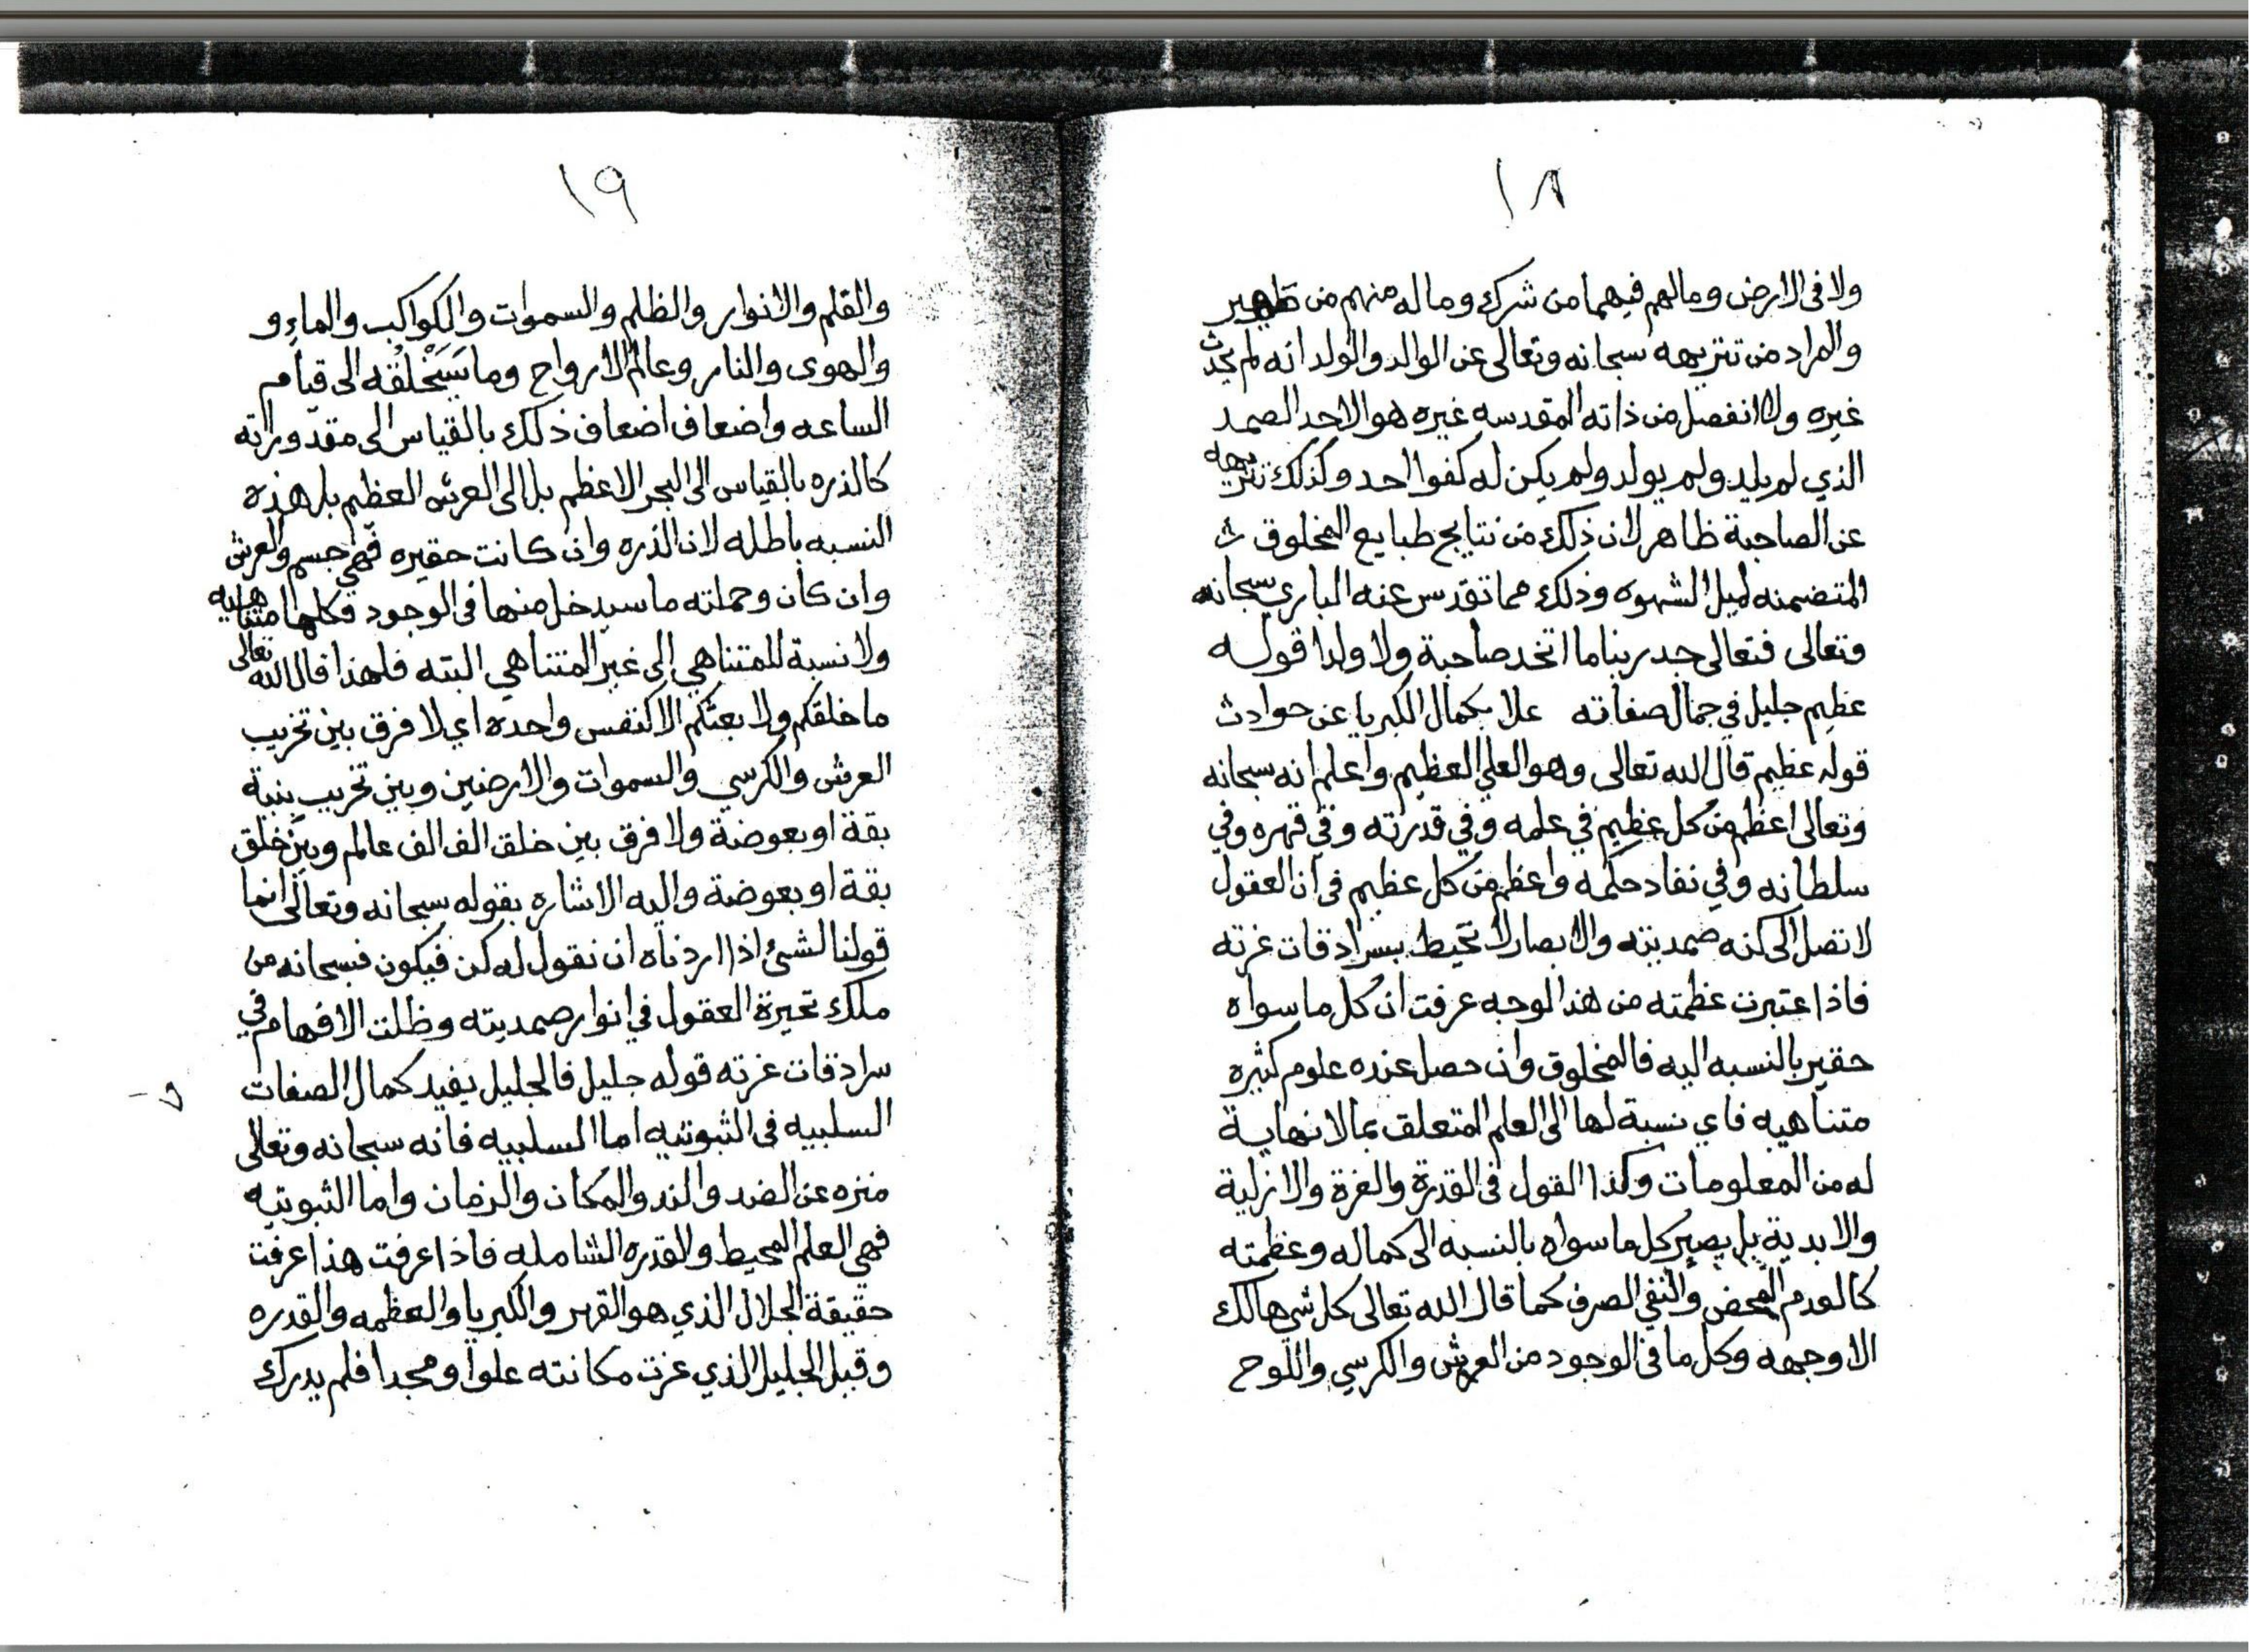 ١٨
ولا فى الارض ومالهم فيهما من شرك وماله منهم من ظهير
والمراد من تنزيهه سبحانه وتعالى عن الوالد والولد انه لم يحدث
غيره ولا انفصل من ذاته المقدسه غيره هو الاحد الصمد
الذي لم يلد ولم يولد ولم يكن له كفوا احد وكذلك تنزيهه
عن الصاحبة ظاهر لان ذلك من نتايج طبايع المخلوق
المتضمنه لميل الشهوه وذلك مما تقدس عنه الباري سبحانه
وتعالى فتعالى جد ربنا ما اتخد صاحبة ولا ولدا قوله
عظيم جليل في جمال صفاته علا بكمال الكبريا عن حوادث
قوله عظيم قال الله تعالى وهو العلي العظيم واعلم انه سبحانه
وتعالى اعظم من كل عظيم في علمه وفي قدرته وفي قهره وفي
سلطانه وفي نفاد حكمه واعظم من كل عظيم فى ان العقول
لا تصل الى كنه صمديته والابصار لا تحيط بسرادقات عزته
فاذا عتبرت عظمته من هذ الوجه عرفت ان كل ما سواه
حقير بالنسبه اليه فالمخلوق وان حصل عنده علوم كثيره
متناهيه فاي نسبة لها الى العلم المتعلق بما لا نهاية
له من المعلومات وكذا القول فى القدرة والعزة والازلية
والابدية بل يصير كل ما سواه بالنسبه الى كماله وعظمته
كالعدم المحض والنفي الصرف كما قال الله تعالى كل شي هالك
الا وجهه وكل ما فى الوجود من العرش والكرسي واللوح
١٩
والقلم والانوار والظلم والسموات والكواكب والماء و
والهوى والنار وعالم الارواح وما سَيَخْلُقُه الى قيام
الساعه واضعاف اضعاف ذلك بالقياس الى مقدوراته
كالذره بالقياس الى البحر الاعظم بل الى العرش العظيم بل هذه
النسبه باطله لان الذره وان كانت حقيره فهي جسم والعرش
وان كان وحملته ما سيدخل منها فى الوجود فكلها متناهيه
ولا نسبة للمتناهي الى غير المتناهي البته فلهذا قال الله تعالى
ما خلقكم ولا بعثكم الا كنفس واحده اي لا فرق بين تخريب
العرش والكرسي والسموات والارضين وبين تخريب بنية
بقة او بعوضة ولا فرق بين خلق الف الف عالم وبين خلق
بقة او بعوضة واليه الاشاره بقوله سبحانه وتعالى انما
قولنا لشئ اذا اردناه ان نقول له كن فيكون فسبحانه من
ملك تحيرة العقول في انوار صمديته وظلت الافهام في
سرادقات عزته قوله جليل فالجليل يفيد كمال الصفات
السلبيه فى الثبوتيه اما السلبيه فانه سبحانه وتعالى
منزه عن الضد والند والمكان والزمان واما الثبوتيه
فهي العلم المحيط والقدره الشامله فاذا عرفت هذا عرفت
حقيقة الجلال الذي هو القهر والكبريا والعظمه والقدره
وقيل الجليل الذي عزت مكانته علوا ومجدا فلم يدرك